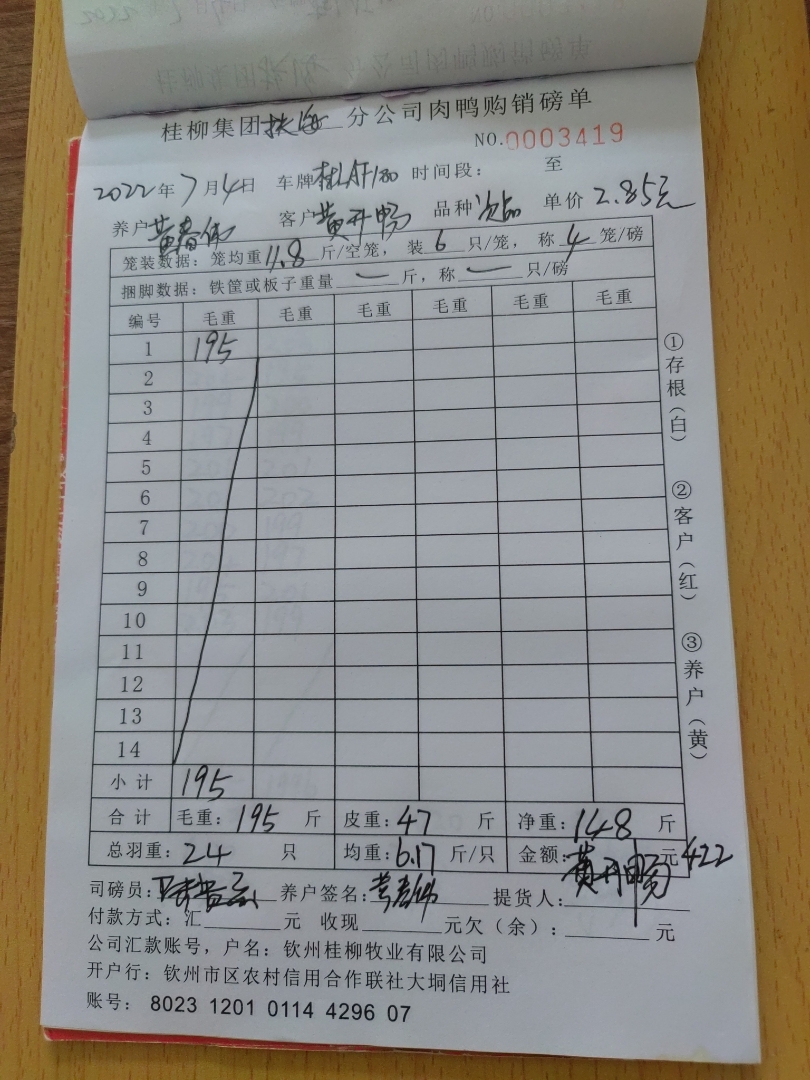 桂柳集团 分公司肉鸭购销磅单
NO.0003419
2022年7月4日 车牌 时间段: 至
养户黄春伟 客户黄开畅 品种次品 单价2.85元
笼装数据:笼均重11.8斤/空笼,装6只/笼,称4笼/磅
捆脚数据:铁筐或板子重量一斤,称一只/磅
编号 毛重 毛重 毛重 毛重 毛重 毛重
1 195
2
3
4
5
6
7
8
9
10
11
12
13
14
小计 195
合计 毛重:195斤 皮重:47斤 净重:148斤
总羽重:24只 均重:6.17斤/只 金额:元422
司磅员: 养户签名:黄春伟 提货人:黄开畅
付款方式:汇 元 收现 元欠(余): 元
公司汇款账号,户名:钦州桂柳牧业有限公司
开户行:钦州市区农村信用合作联社大垌信用社
账号: 8023 1201 0114 4296 07
①存根(白)
②客户(红)
③养户(黄)